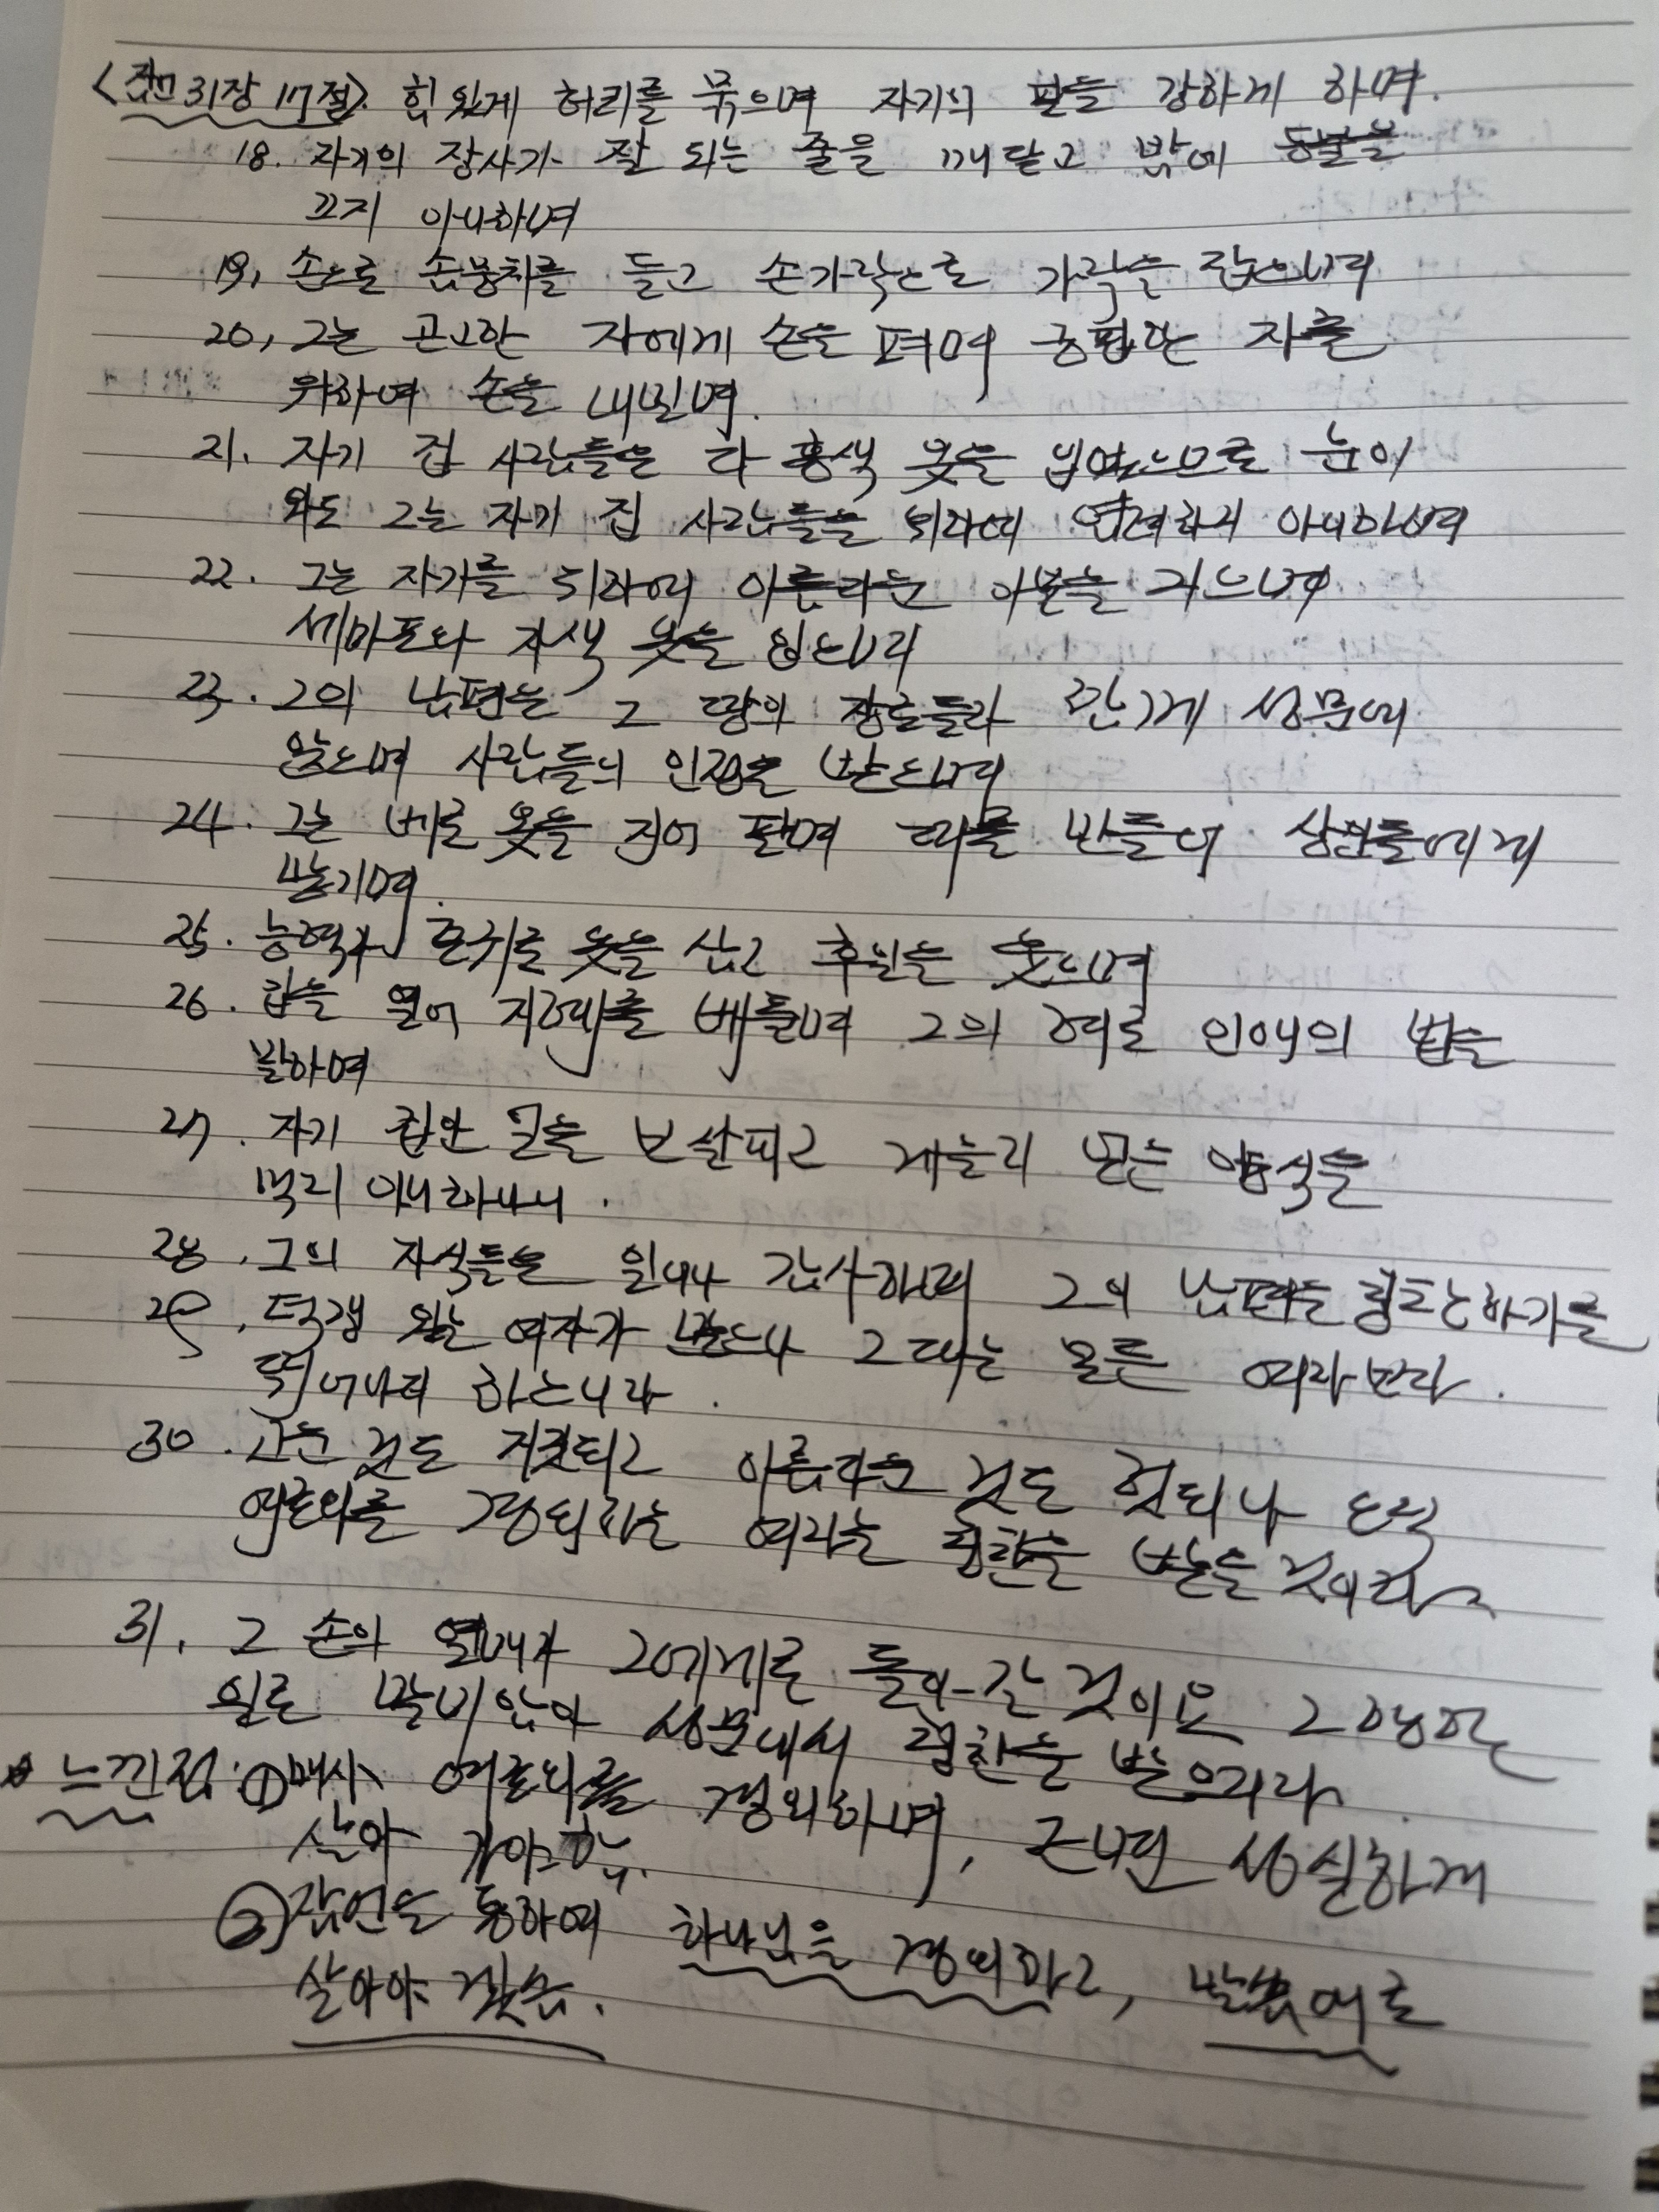 <잠언 31장 17절> 힘 있게 허리를 묶으며 자기의 팔을 강하게 하며.
18. 자기의 장사가 잘 되는 줄을 깨닫고 밤에 등불을
끄지 아니하며
19, 손으로 솜뭉치를 들고 손가락으로 가락을 잡으며
20, 그는 곤고한 자에게 손을 펴며 궁핍한 자를
위하여 손을 내밀며.
21. 자기 집 사람들은 다 홍색 옷을 입었으므로 눈이
와도 그는 자기 집 사람들을 위하여 염려하지 아니하며
22. 그는 자기를 위하여 아름다운 이불을 지으며
세마포와 자색 옷을 입으며
23. 그의 남편은 그 땅의 장로들과 함께 성문에
앉으며 사람들의 인정을 받으며
24. 그는 베로 옷을 지어 팔며 띠를 만들어 상인들에게
맡기며.
25. 능력과 존귀로 옷을 삼고 후일을 웃으며
26. 입을 열어 지혜를 베풀며 그의 혀로 인애의 법을
말하며
27. 자기 집안 일을 보살피고 게을리 얻은 양식을
먹지 아니하나니.
28. 그의 자식들은 일어나 감사하며 그의 남편은 칭찬하기를
29. 덕행 있는 여자가 많으나 그대는 모든 여자보다
뛰어나다 하느니라.
30. 고운 것도 거짓되고 아름다운 것도 헛되나 오직
여호와를 경외하는 여자는 칭찬을 받을 것이라
31. 그 손의 열매가 그에게로 돌아갈 것이요 그 행한
일로 말미암아 성문에서 칭찬을 받으리라.
* 느낀점: ① 매사 여호와를 경외하며, 근면 성실하게
살아 가야함.
② 잠언을 통하여 하나님을 경외하고, 말씀에로
살아야 겠슴.